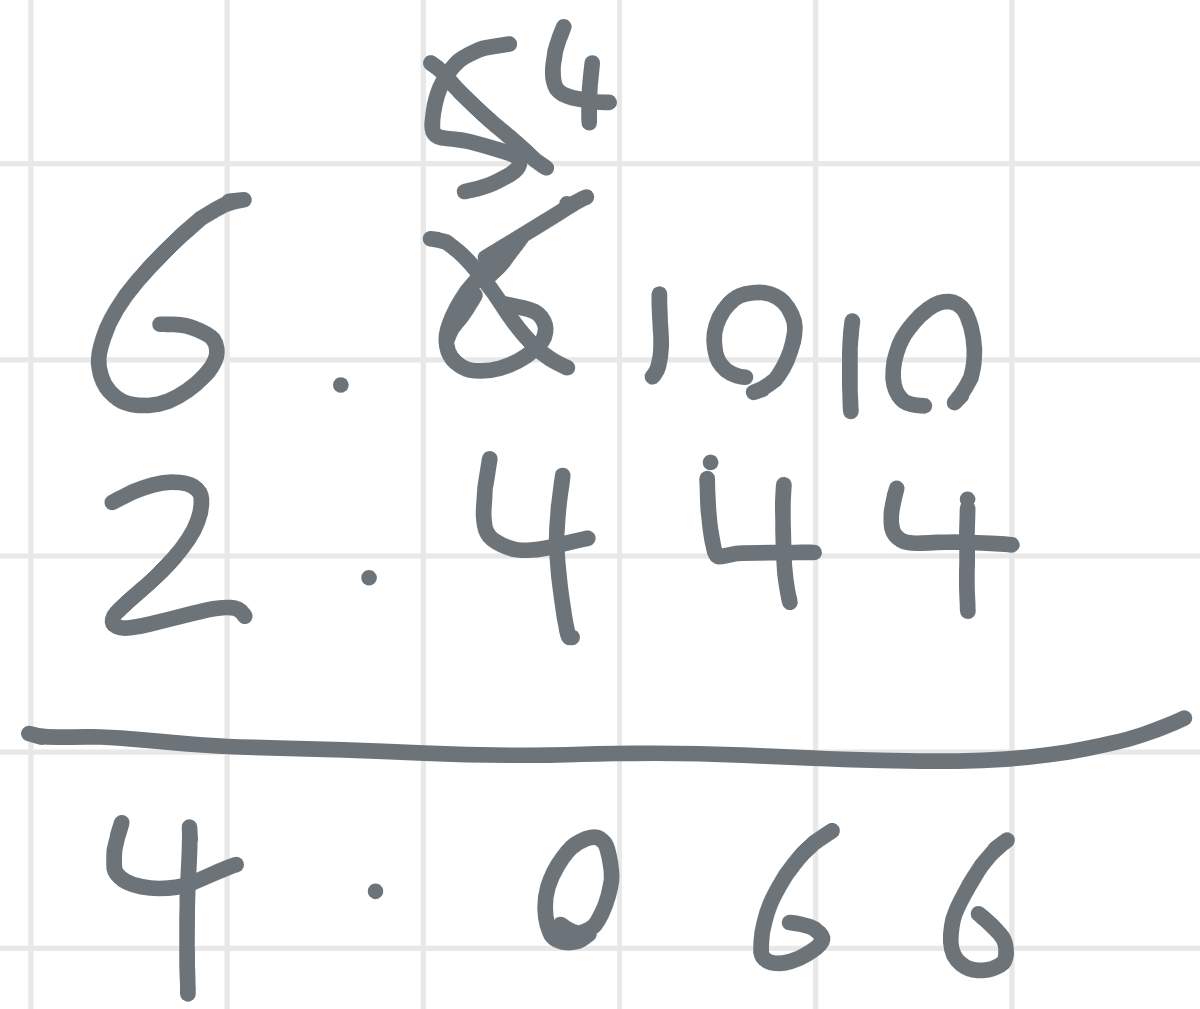 5 4
6 . 6 10 10
2 . 4 4 4
4 . 0 6 6